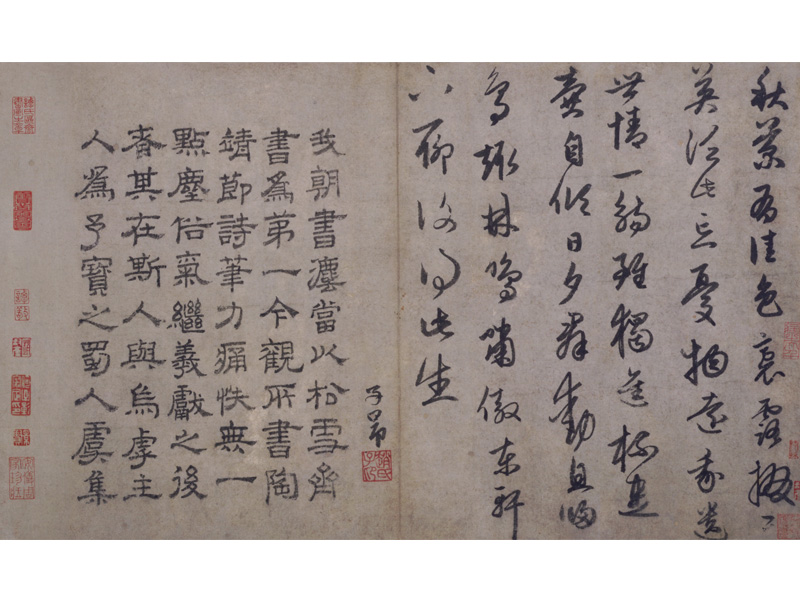 秋菊有佳色裛露掇其
英汎此忘憂物遠我遺
世情一觴雖獨進杯盡
壺自傾日夕群動息歸
鳥趨林鳴嘯傲東軒
下聊復得此生
子昂
趙氏子昂
我朝書灋當以松雪齋
書為第一今觀所書陶
靖節詩筆力痛快無一
點塵俗氣繼羲獻之後
者其在斯人與烏虖主
人為予寶之蜀人虞集